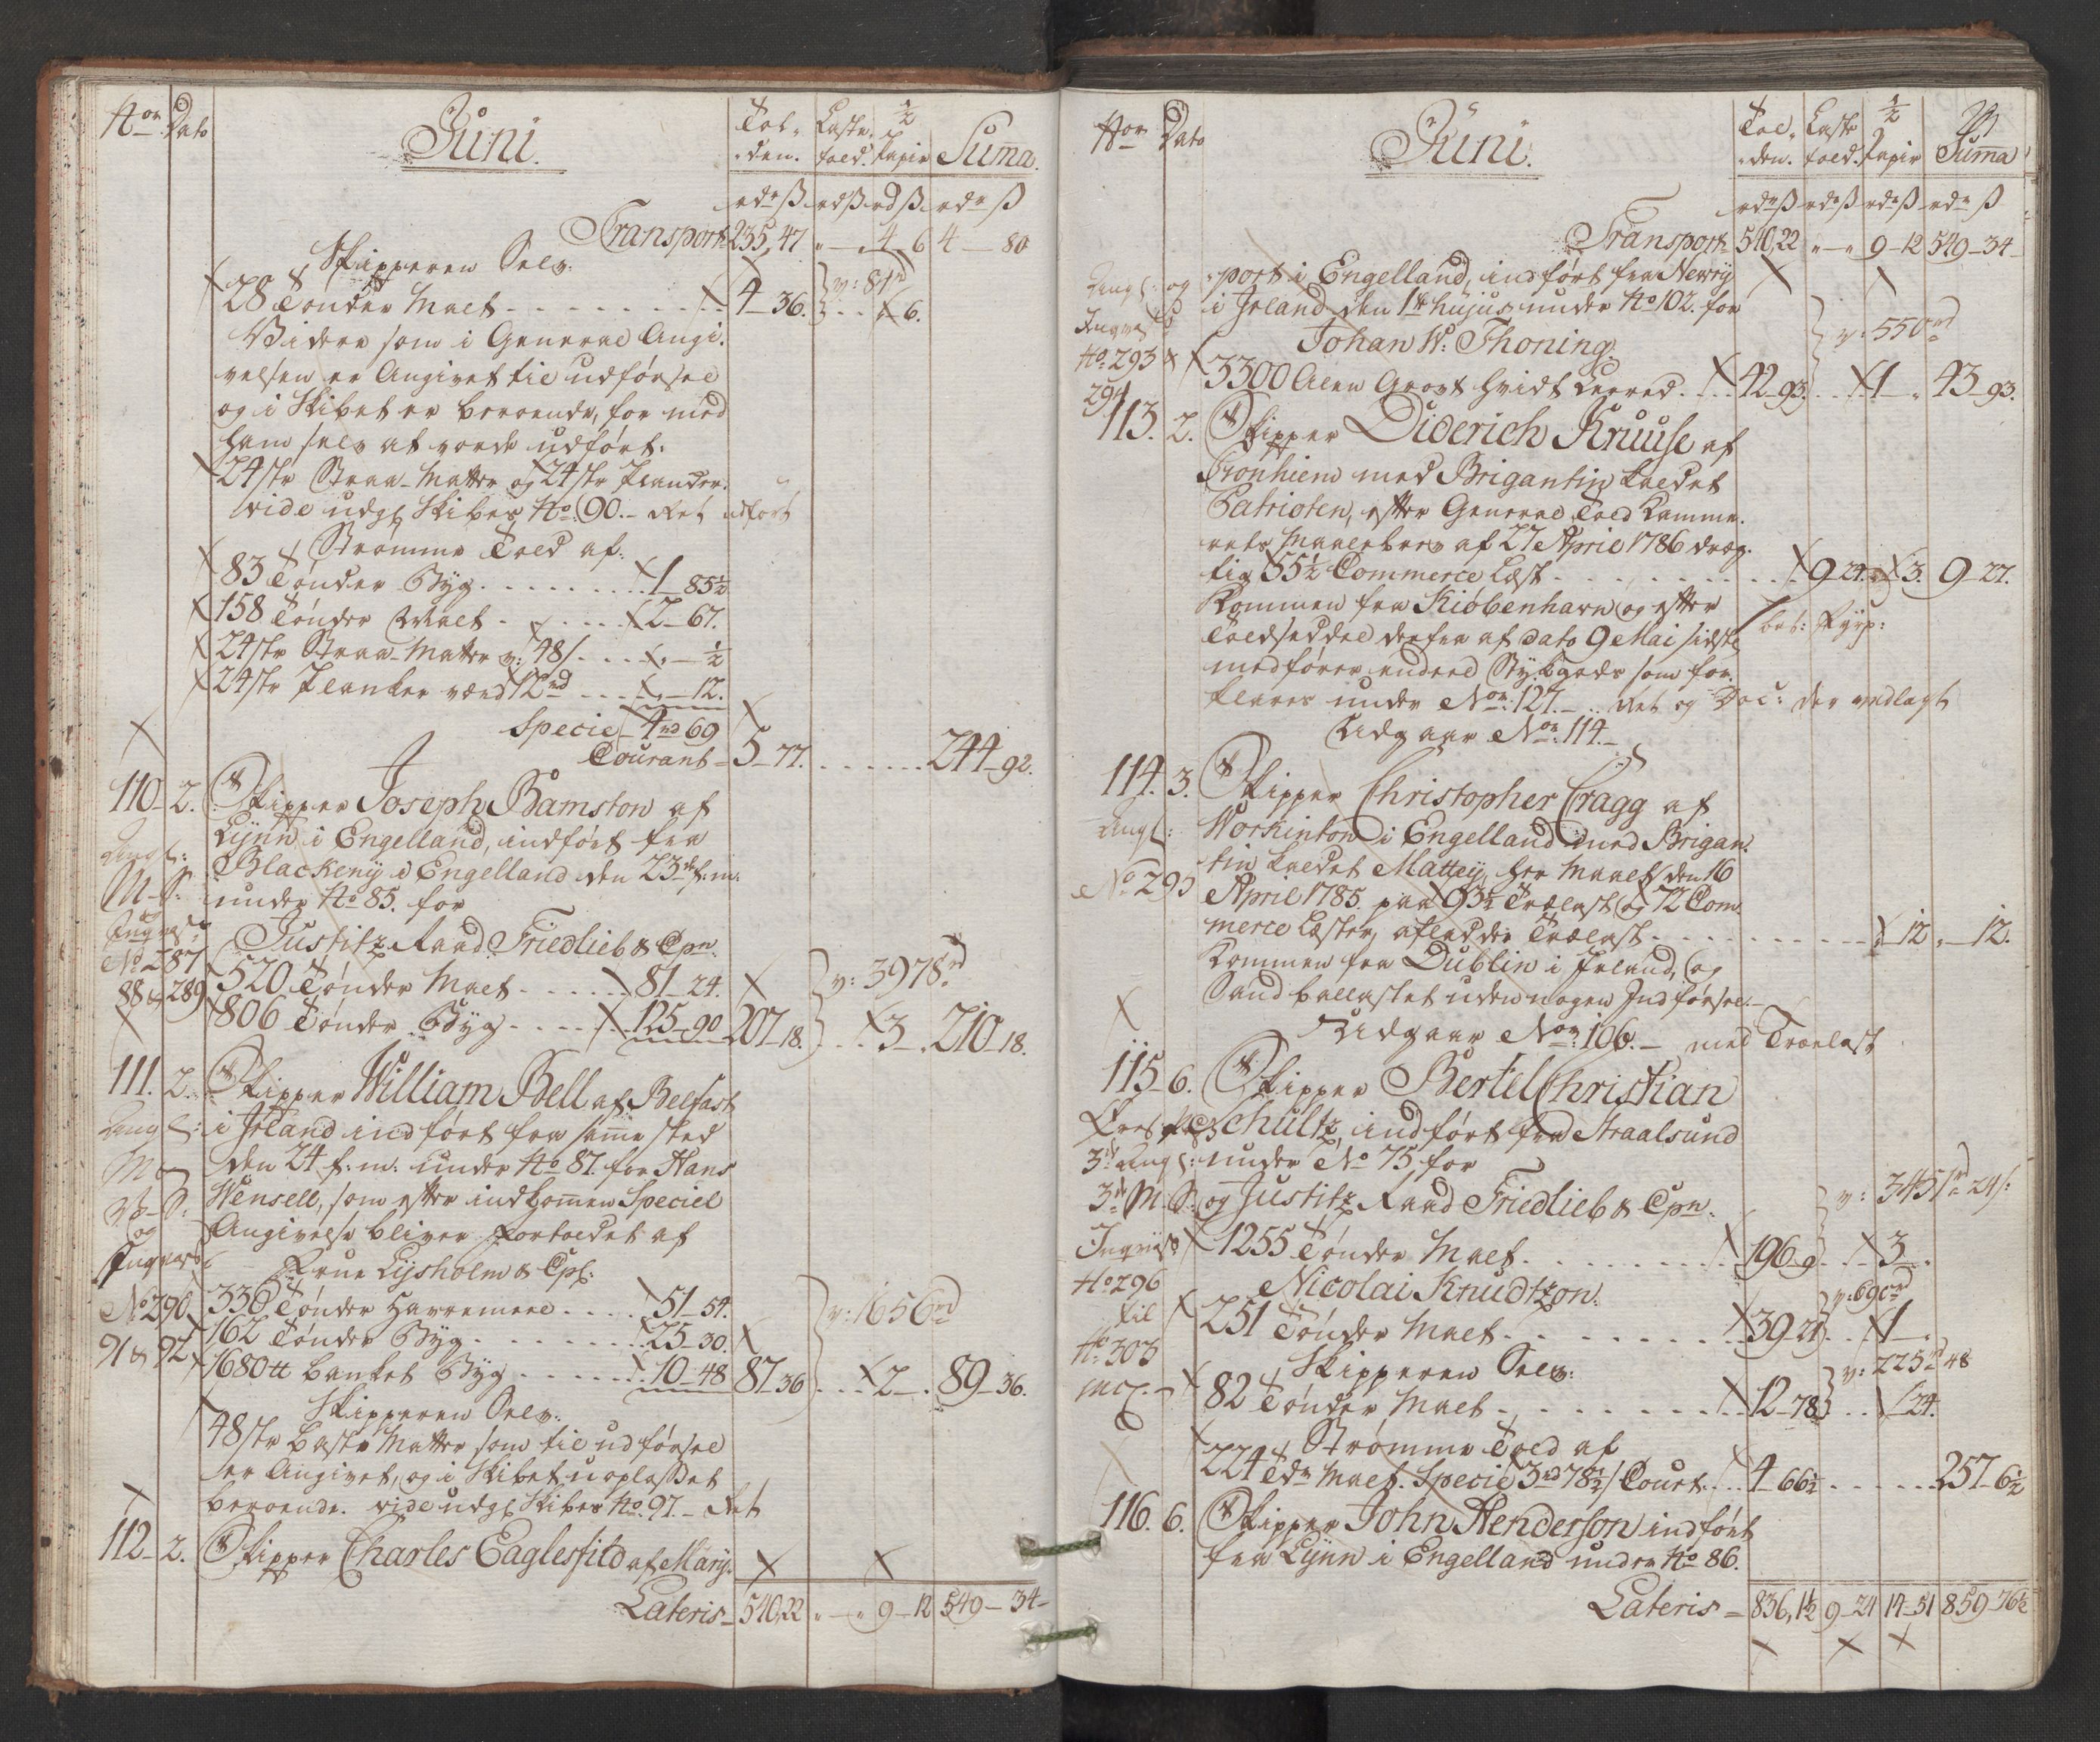 No Dato
Juni.
Tol- Læste ½
den. told. Papir Suma.
rdr ß rd ß rd ß rdr ß
Transport 235,47 „ — „ 4 — 6 4 — 80
Skipperen Selv:
28 Tønder Malt 4 — 36. v: 81rd
6.
Videre som i General Angi-
velsen er Angivet til udførsel
og i Skibet er beroende, for med
ham selv at vorde udført.
24 str Straa-Matter og 24 str Plancker
vide udg: Skibes No. 90. — Ret udført
Strømme Told af:
83 Tønder Byg 1 — 85½
158 Tønder Malt 2 — 67.
24 str Straa-Matter v: 48 ß „ — ½
24 str Plancker værd 12rd „ — 12.
Specie 4rd 69
Courant — 5 — 77. 244 — 92.
110 — 2. Skipper Joseph Bamston af
Lynn i Engelland, indført fra
Blackeny i Engelland den 23de f: m:
under No 85. for
Angl:
M-S:
og
Inqvis:
Justitz Raad Friedlieb & Cpn.
No 287
520 Tønder Malt 81 — 24. v: 3978rd
88 & 289
806 Tønder Byg 125 — 90 207 — 18. 3 — „ 210 — 18.
111. 2. Skipper William Bell af Belfast
Angl: i Irland indført fra samme sted
den 24 f: m: under No 87. for Hans
Wensell, som efter indkommen Speciel
Angivelse bliver fortoldet af
og
Inqvis:
Lysholm & Cpl:
No 290 336 Tønder Havremeel 51 — 54. v: 1656rd
162 Tønder Byg 25 — 30.
91 & 92 1680 ℔ banket Byg 10 — 48 87 — 36 2 — „ 89 — 36.
Skipperen Selv:
48 str baste Matter som til udførsel
er Angivet, og i Skibet uoplasset
beroende. vide udg: Skibes No. 97. — Ret
112 — 2. Skipper Charles Eaglesfild af Mary-
Lateris — 540,22 „ — „ 9 — 12 549 — 34 —
No Dato
Juni.
Tol- Læste ½
den. told. Papir Suma
rdr ß rdr ß rdr ß rdr ß
Transport 540,22 „ — „ 9 — 12 549 — 34 —
Angl: og
port i Engelland, indført fra Newry
i Irland den 1te hujus under No 102. for
Inqvis:
Johan W: Thoning. v: 550rd
No. 293 &
3300 Alen Grovt hvidt Lærred. 42 — 93. 1 „ 43 — 93.
294
113. 2. Skipper Diderich Kruuse af
Tronhiem med Brigantin kaldet
Patrioten, efter General Told Kamme-
rets Maalebrev af 27 April 1786 dræg-
tig 55½ Commerce Læst 9 — 24. 3. 9 — 27.
Kommen fra Kiøbenhavn og efter
Toldseddel derfra af dato 9 Mai sidstl:
medfører endeel Stykgods som for-
klares under Nor: 127. — Ret og Doc: der vedlagt
Udgaar Nor: 114. —
114. 3. Skipper Christopher Cragg af
Angl: Workinton i Engelland med Brigan-
tin kaldet Mattey, her maalt den 16
No 295 April 1785. paa 93½ Trælast og 72 Com-
merce Læster, afladder Trælast 12 „ — 12.
Kommen fra Dublin i Irland, og
Sand ballastet uden nogen Indførsel. —
Udgaar Nor: 106. — med Trælast
115 — 6. Skipper Bertel Christian
Schultz, indført fra Straalsund
3de Angl: under No 75 for
3de M-S: og Justitz Raad Friedlieb & Cpn. v: 3451rd 24 ß:
Inqvis: 1255 Tønder Malt 196 — 9 3 — „
No 296 Nicolai Knudtzon. v: 690rd
til
251 Tønder Malt 39 — 21 1 — „
No. 303
Skipperen Selv: v: 225rd 48
incl.
82 Tønder Malt 12 — 78 24.
Strømme Told af
224 Tdr Malt. Specie 3rd 78½ ß Court. 4 — 66½ 257 — 6½
116. 6. Skipper John Henderson indført
fra Lynn i Engelland under No 86.
Lateris — 836,1½ 9 — 24 14 — 51 859 — 76½